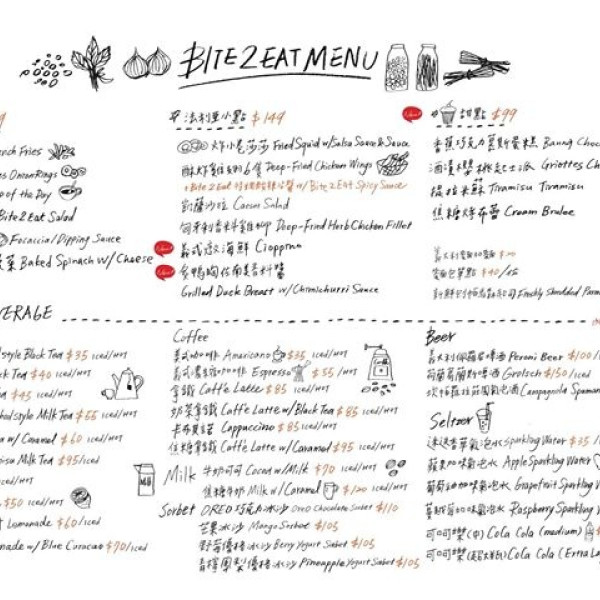 BITE2EAT MENU
nch Fries
s Onion Rings
p of the Day
Bite2Eat Salad
Focaccia/Dipping Sauce
菜 Baked Spinach w/ Cheese
法利亚小點 $149
Fried Squid w/ Salsa Sauce & Sauce
Deep-Fried Chicken Wings
w/ Bite 2 Eat Spicy Sauce
凱薩沙拉 Caesar Salad
Deep-Fried Herb Chicken Fillet
義式燉海鮮 Cioppino
炙鴨胸佐南美香料醬
Grilled Duck Breast w/ Chimichurri Sauce
甜點 $99
香蕉巧克力慕斯蛋糕 Banng Choc
Griottes Ch
提拉米蘇 Tiramisu Tiramisu
焦糖烤布蕾 Cream Brulee
$20
$40
Freshly Shredded Parm
VERAGE
style Black Tea $35 iced/Hot
ck Tea $40 iced/Hot
ea $45 iced/Hot
style Milk Tea $55 iced/Hot
a w/ Caramel $60 iced/Hot
isu Milk Tea $95/iced
$50 iced/Hot
t Lemonade $60/iced
nade w/ Blue Curacao $70/iced
Coffee
美式咖啡 Americano $35 iced/Hot
Espresso $55 /Hot
拿鐵 Caffè Latte $85 iced/Hot
奶茶拿鐵 Caffè Latte w/ Black Tea $85 iced/Hot
卡布其諾 Cappuccino $85 iced/Hot
焦糖拿鐵 Caffè Latte w/ Caramel $95 iced/Hot
Milk 牛奶可可 Cocoa w/ Milk $70 iced/Hot
焦糖牛奶 Milk w/ Caramel $120 iced/Hot
Sorbet OREO巧克力冰沙 Oreo Chocolate Sorbet $110
芒果冰沙 Mango Sorbet $105
野莓優格冰沙 Berry Yogurt Sorbet $105
青檸鳳梨優格冰沙 Pineapple Yogurt Sorbet $105
Beer
Peroni Beer $100
Grolsch $150/iced
Campagnola Spuman
Seltzer
氣泡水 Sparkling Water $35
蘋果加味氣泡水 Apple Sparkling W
葡萄柚加味氣泡水 Grapefruit Sparkling W
蔓越莓加味氣泡水 Raspberry Sparkling W
可口可樂(中) Coca Cola (medium)
可口可樂 Coca Cola (Extra La